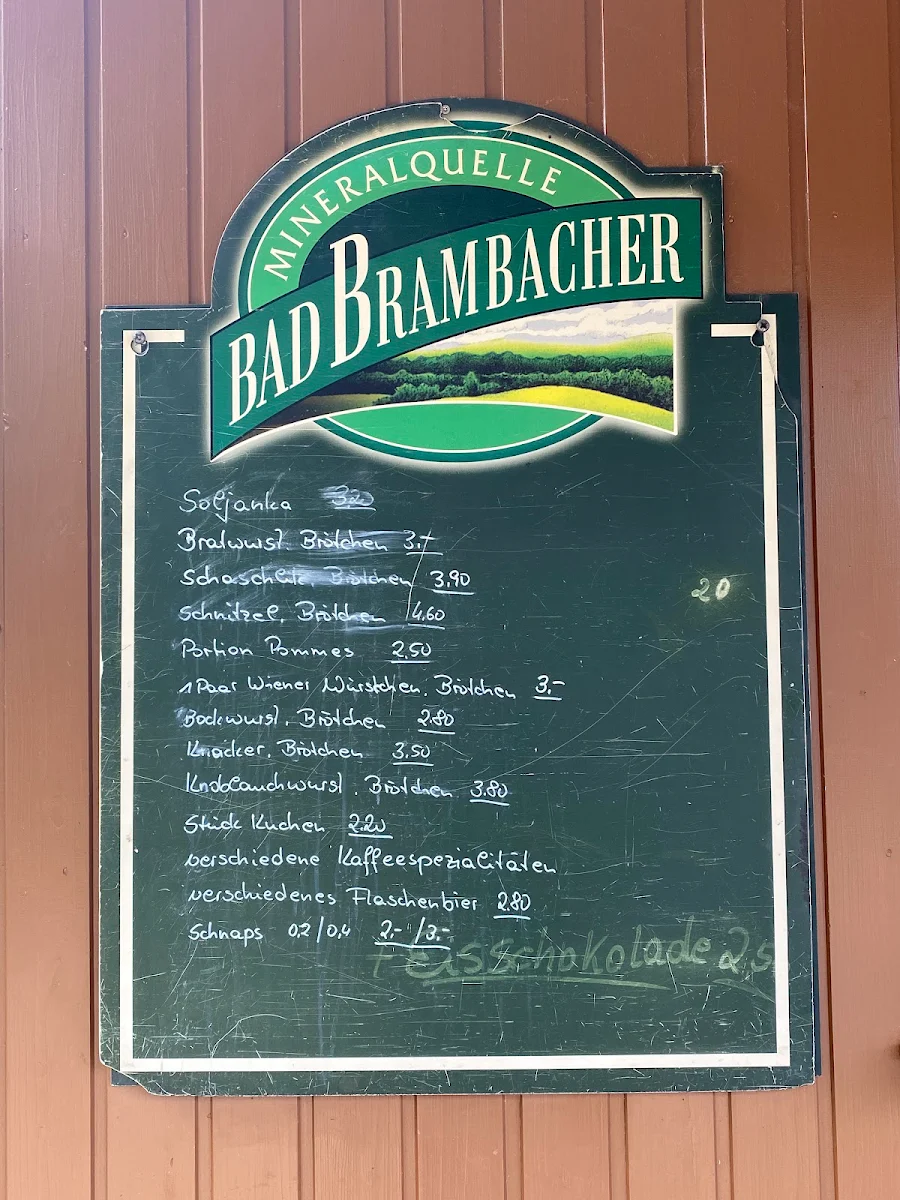 MINERALQUELLE
BAD BRAMBACHER
Soljanka 3.20
Bratwurst, Brötchen 3,-
Schaschlik, Brötchen 3,90
Schnitzel, Brötchen 4.60
Portion Pommes 2,50
1 Paar Wiener Würstchen, Brötchen 3,-
Bockwurst, Brötchen 2.80
Knacker, Brötchen 3,50
Knoblauchwurst, Brötchen 3.80
Stück Kuchen 2.20
verschiedene Kaffeespezialitäten
verschiedenes Flaschenbier 2.80
Schnaps 0,2/0,4 2,-/3,-
+ Eisschokolade 2,5
20